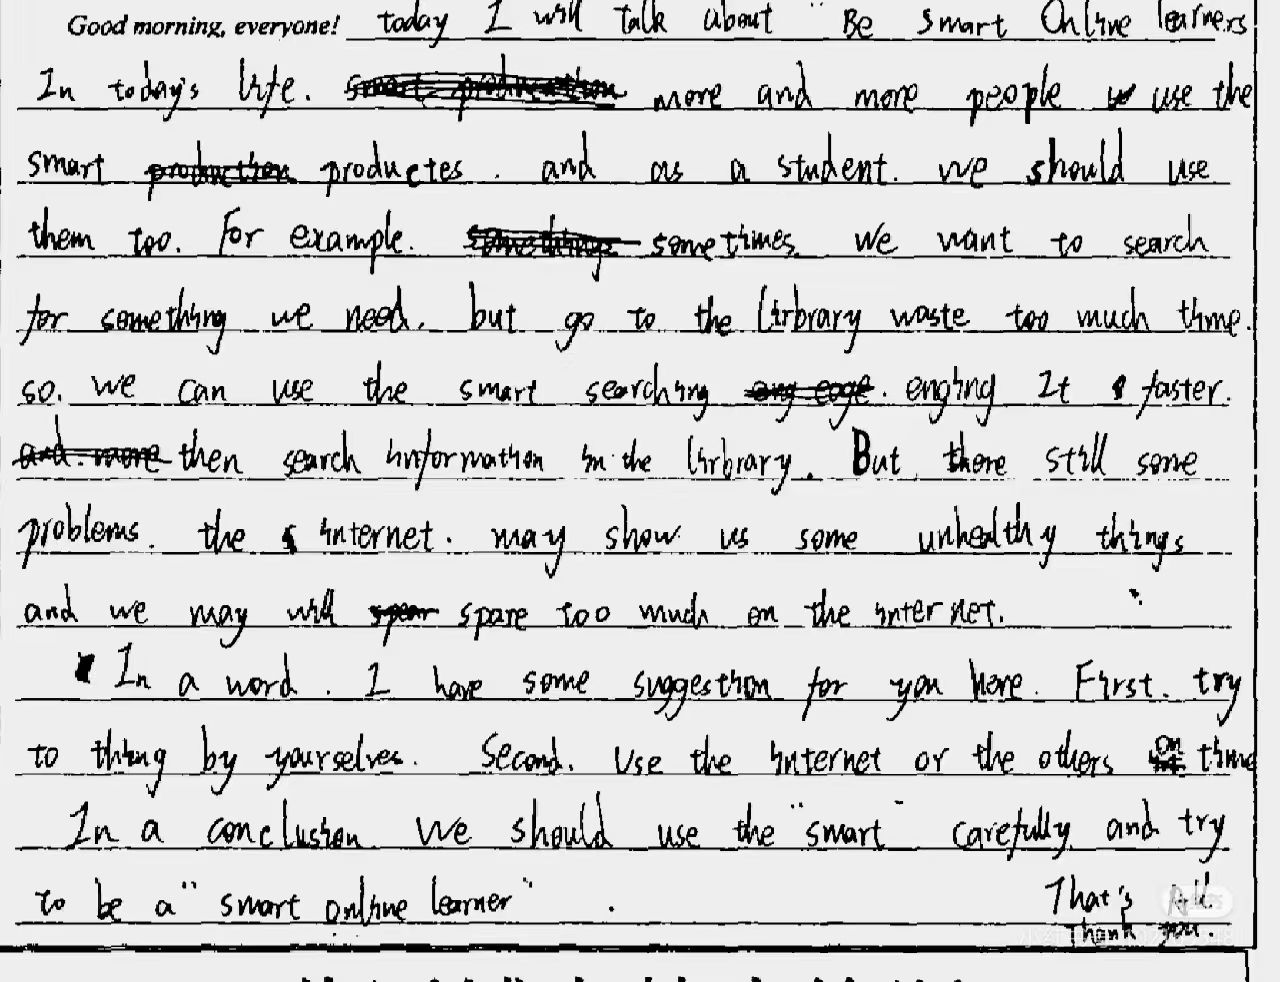 Good morning, everyone! today I will talk about "Be smart Online learners
In today's life. more and more people use the
smart productes. and as a student. we should use
them too. For example. sometimes. we want to search
for something we need. but go to the lirbrary waste too much time.
so. we can use the smart searching enging It faster.
then search information in the lirbrary. But there still some
problems. the internet. may show us some unhealthy things
and we may will spare too much on the internet.
In a word. I have some suggestion for you here. First. try
to thing by yourselves. Second. Use the internet or the others on time
In a conclusion we should use the "smart" carefully and try
to be a "smart online learner".
That's All
Thank you.